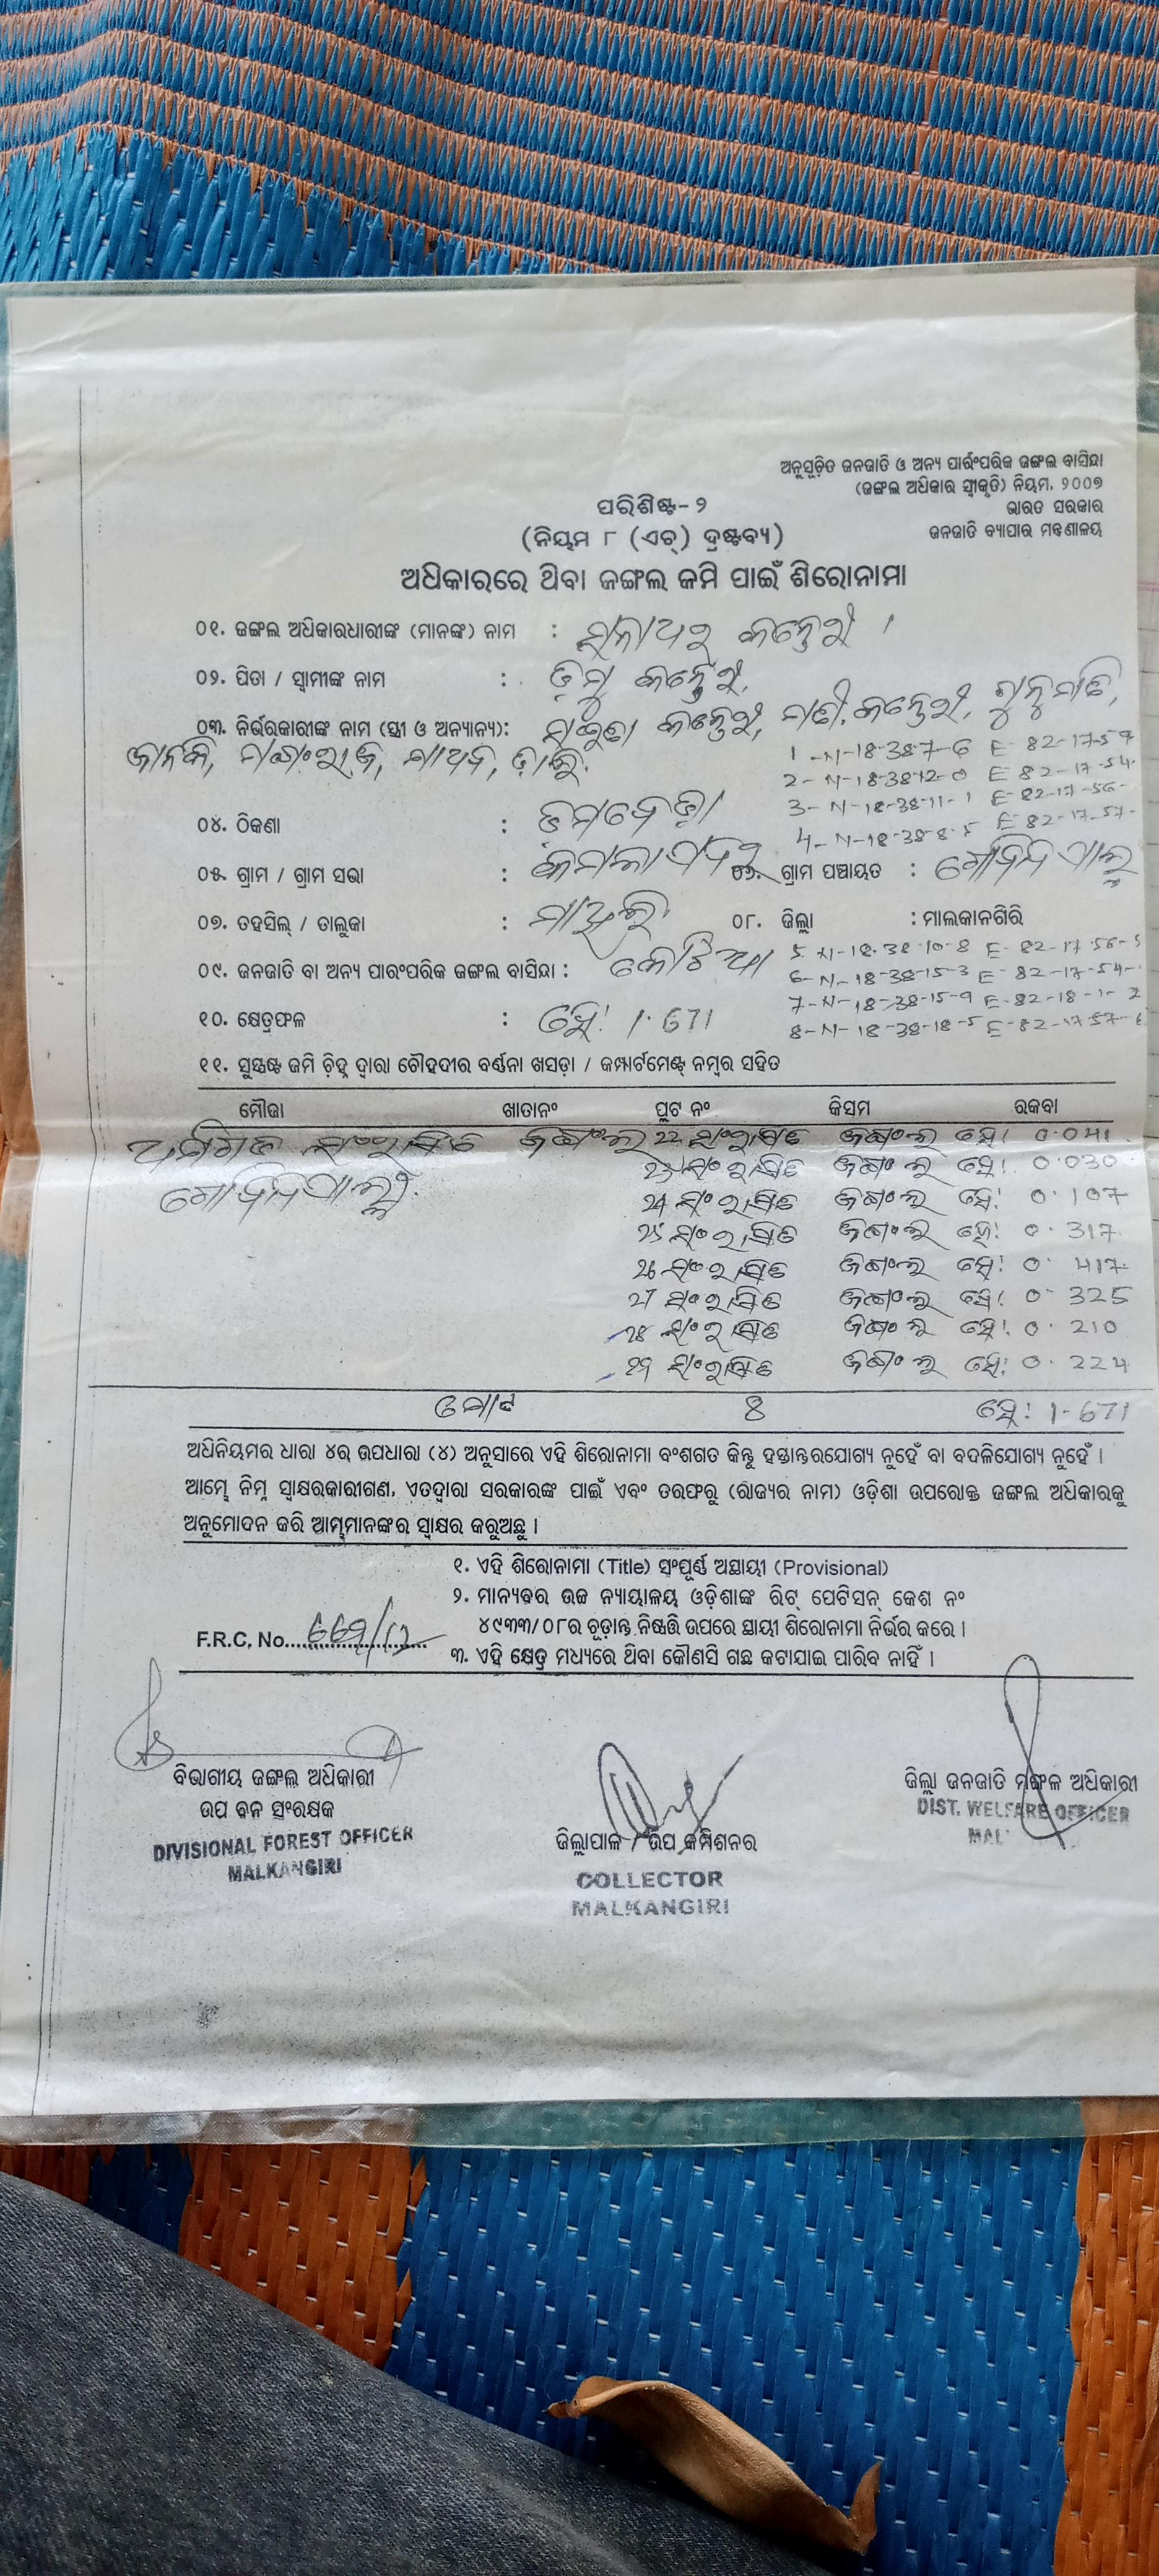 ଅନୁସୂଚିତ ଜନଜାତି ଓ ଅନ୍ୟ ପାରଂପରିକ ଜଙ୍ଗଲ ବାସିନ୍ଦା
(ଜଙ୍ଗଲ ଅଧିକାର ସ୍ୱୀକୃତି) ନିୟମ, ୨୦୦୭
ଭାରତ ସରକାର
ଜନଜାତି ବ୍ୟାପାର ମନ୍ତ୍ରଣାଳୟ
ପରିଶିଷ୍ଟ-୨
(ନିୟମ ୮ (ଏଚ୍) ଦ୍ରଷ୍ଟବ୍ୟ)
ଅଧିକାରରେ ଥିବା ଜଙ୍ଗଲ ଜମି ପାଇଁ ଶିରୋନାମା
୦୧. ଜଙ୍ଗଲ ଅଧିକାରଧାରୀଙ୍କ (ମାନଙ୍କ) ନାମ :
୦୨. ପିତା / ସ୍ୱାମୀଙ୍କ ନାମ :
୦୩. ନିର୍ଭରକାରୀଙ୍କ ନାମ (ସ୍ତ୍ରୀ ଓ ଅନ୍ୟାନ୍ୟ):
ଜାନକି,
1-N-18-38-7-6 E-82-17-59
2-N-18-38-12-0 E-82-17-54
3-N-18-38-11-1 E-82-17-56-
4-N-18-38-8-5 E-82-17-57-
୦୪. ଠିକଣା :
୦୫. ଗ୍ରାମ / ଗ୍ରାମ ସଭା : ୦୬. ଗ୍ରାମ ପଞ୍ଚାୟତ : ଗୋବିନ୍ଦପାଲ୍ଲୀ
୦୭. ତହସିଲ୍ / ତାଲୁକା : ୦୮. ଜିଲ୍ଲା : ମାଲକାନଗିରି
5-N-18-38-10-8 E-82-17-56-
୦୯. ଜନଜାତି ବା ଅନ୍ୟ ପାରଂପରିକ ଜଙ୍ଗଲ ବାସିନ୍ଦା :
6-N-18-38-15-3 E-82-17-54-
7-N-18-38-15-9 E-82-18-1-2
୧୦. କ୍ଷେତ୍ରଫଳ : ହେ! 1.671
8-N-18-38-18-5 E-82-17-57-6
୧୧. ସୁସ୍ପଷ୍ଟ ଜମି ଚିହ୍ନ ଦ୍ୱାରା ଚୌହଦୀର ବର୍ଣ୍ଣନା ଖସଡ଼ା / କମ୍ପାର୍ଟମେଣ୍ଟ୍ ନମ୍ବର ସହିତ
ମୌଜା ଖାତାନଂ ପ୍ଲଟ ନଂ କିସମ ରକବା
ସଂରକ୍ଷିତ ଜଙ୍ଗଲ 22 ସଂରକ୍ଷିତ ଜଙ୍ଗଲ ହେ! 0.041
ଗୋବିନ୍ଦପାଲ୍ଲୀ 23 ସଂରକ୍ଷିତ ଜଙ୍ଗଲ ହେ! 0.030
24 ସଂରକ୍ଷିତ ଜଙ୍ଗଲ ହେ! 0.107
25 ସଂରକ୍ଷିତ ଜଙ୍ଗଲ ହେ! 0.317
26 ସଂରକ୍ଷିତ ଜଙ୍ଗଲ ହେ! 0.417
27 ସଂରକ୍ଷିତ ଜଙ୍ଗଲ ହେ! 0.325
28 ସଂରକ୍ଷିତ ଜଙ୍ଗଲ ହେ! 0.210
29 ସଂରକ୍ଷିତ ଜଙ୍ଗଲ ହେ! 0.224
ମୋଟ 8 ହେ! 1.671
ଅଧିନିୟମର ଧାରା ୪ର ଉପଧାରା (୪) ଅନୁସାରେ ଏହି ଶିରୋନାମା ବଂଶଗତ କିନ୍ତୁ ହସ୍ତାନ୍ତରଯୋଗ୍ୟ ନୁହେଁ ବା ବଦଳିଯୋଗ୍ୟ ନୁହେଁ ।
ଆମ୍ଭେ ନିମ୍ନ ସ୍ୱାକ୍ଷରକାରୀଗଣ, ଏତଦ୍ୱାରା ସରକାରଙ୍କ ପାଇଁ ଏବଂ ତରଫରୁ (ରାଜ୍ୟର ନାମ) ଓଡ଼ିଶା ଉପରୋକ୍ତ ଜଙ୍ଗଲ ଅଧିକାରକୁ
ଅନୁମୋଦନ କରି ଆମ୍ଭମାନଙ୍କର ସ୍ୱାକ୍ଷର କରୁଅଛୁ ।
୧. ଏହି ଶିରୋନାମା (Title) ସଂପୂର୍ଣ୍ଣ ଅସ୍ଥାୟୀ (Provisional)
୨. ମାନ୍ୟବର ଉଚ୍ଚ ନ୍ୟାୟାଳୟ ଓଡ଼ିଶାଙ୍କ ରିଟ୍ ପେଟିସନ୍ କେଶ ନଂ
୪୯୩୩/୦୮ର ଚୂଡ଼ାନ୍ତ ନିଷ୍ପତ୍ତି ଉପରେ ସ୍ଥାୟୀ ଶିରୋନାମା ନିର୍ଭର କରେ ।
F.R.C. No.
୩. ଏହି କ୍ଷେତ୍ର ମଧ୍ୟରେ ଥିବା କୌଣସି ଗଛ କଟାଯାଇ ପାରିବ ନାହିଁ ।
ବିଭାଗୀୟ ଜଙ୍ଗଲ ଅଧିକାରୀ
ଉପ ବନ ସଂରକ୍ଷକ
DIVISIONAL FOREST OFFICER
MALKANGIRI
ଜିଲ୍ଲାପାଳ / ଉପ କମିଶନର
COLLECTOR
MALKANGIRI
ଜିଲ୍ଲା ଜନଜାତି ମଙ୍ଗଳ ଅଧିକାରୀ
DIST. WELFARE OFFICER
MAL